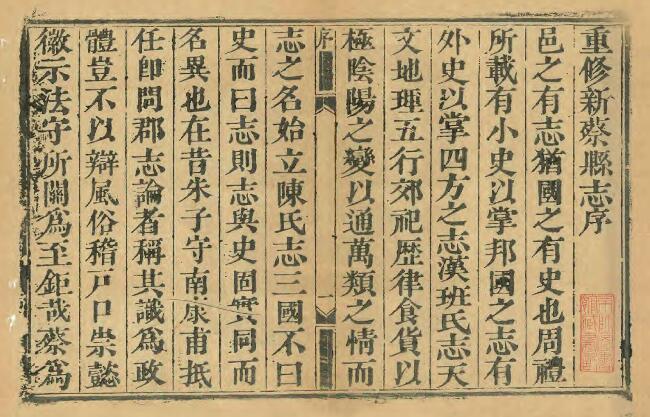 重修新蔡縣志序
邑之有志猶國之有史也周禮
所載有小史以掌邦國之志有
外史以掌四方之志漢班氏志天
文地理五行郊祀歴律食貨以
極陰陽之變以通萬類之情而
序
一
志之名始立陳氏志三國不曰
史而曰志則志與史固實同而
名異也在昔朱子守南康甫抵
任即問郡志論者稱其識爲政
體豈不以辯風俗稽戸口崇懿
徽示法守所關爲至鉅哉蔡爲